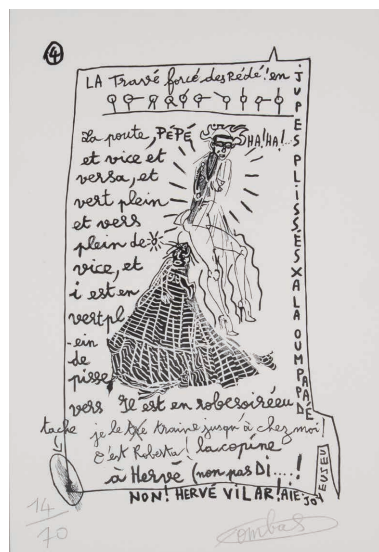 4
LA Travé forcé des Rédé! en
JUPES PLISSÉS XA LA OUMPAPAPADÉ
La poute, PÉPÉ
HA! HA!..
et vice et
versa, et
vert plein
et vers
plein de
vice, et
i est en
vert pl
-ein
de
pisse
vers Il est en robe soirée eu
tache
je le traine jusqu'à chez moi!
C'est Roberta! la copine
à Hervé (non pas Di....!
NON! HERVÉ VILAR! AIE JO
EUJEU
14/70
Combas